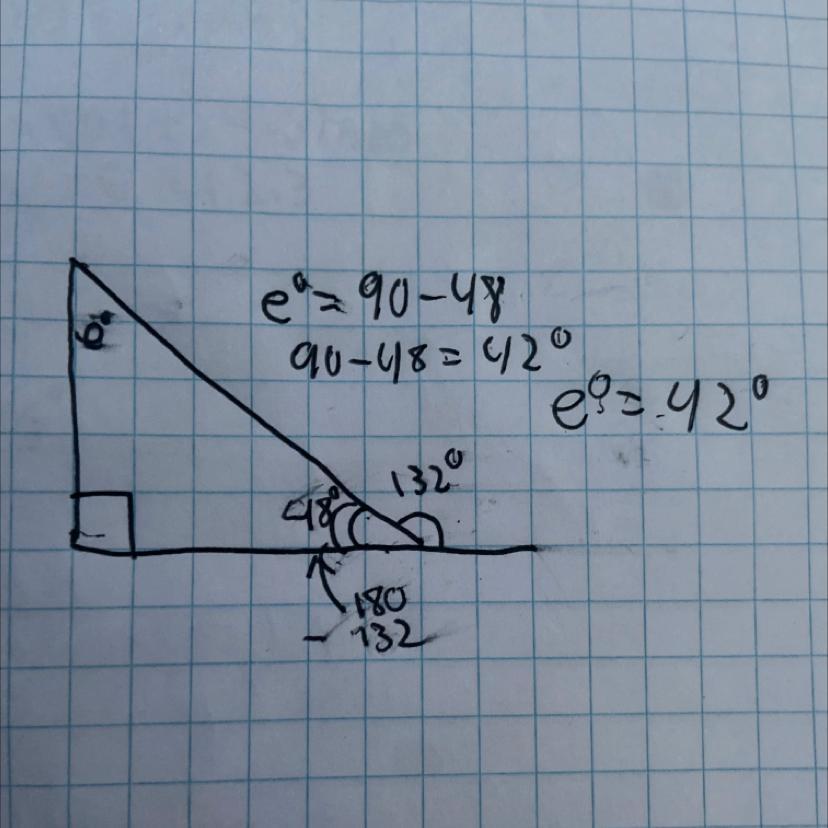 e° = 90 - 48
90 - 48 = 42°
e° = 42°
e°
132°
48°
180
- 132